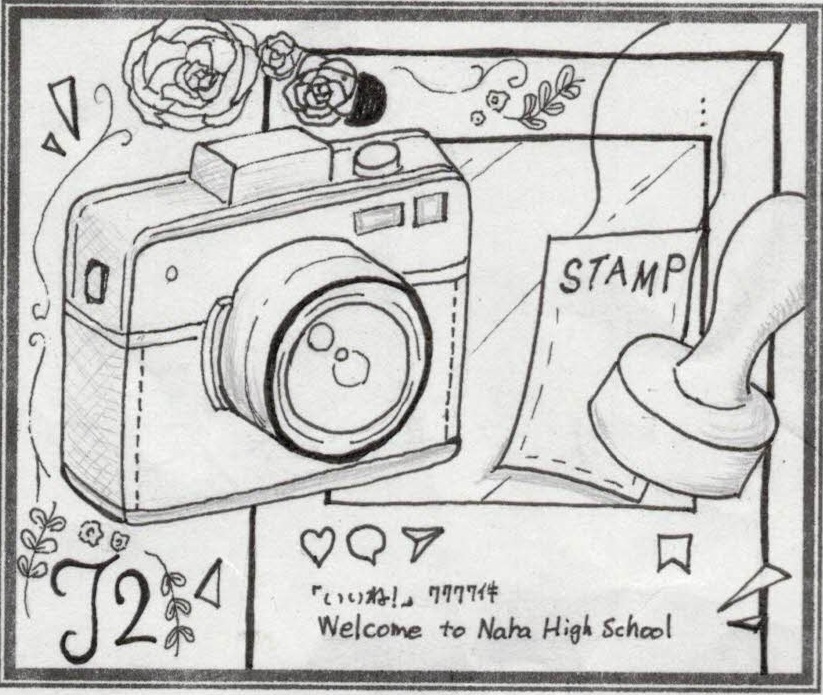 STAMP
J2
「いいね!」 7777件
Welcome to Naha High School